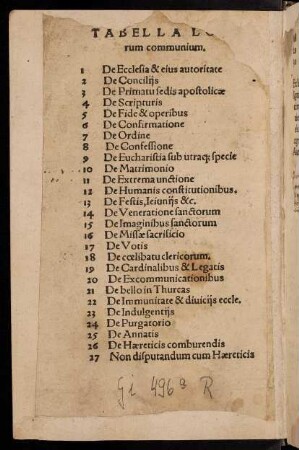 TABELLA LO
rum communium.
1 De Ecclesia & eius autoritate
2 De Concilijs
3 De Primatu sedis apostolicæ
4 De Scripturis
5 De Fide & operibus
6 De Confirmatione
7 De Ordine
8 De Confessione
9 De Eucharistia sub utraq; specie
10 De Matrimonio
11 De Extrema unctione
12 De Humanis constitutionibus.
13 De Festis, Ieiunijs &c.
14 De Veneratione sanctorum
15 De Imaginibus sanctorum
16 De Missæ sacrificio
17 De Votis
18 De cœlibatu clericorum.
19 De Cardinalibus & Legatis
20 De Excommunicationibus
21 De bello in Thurcas
22 De Immunitate & diuicijs eccle.
23 De Indulgentijs
24 De Purgatorio
25 De Annatis
26 De Hæreticis comburendis
27 Non disputandum cum Hæreticis
Gi 4968 R